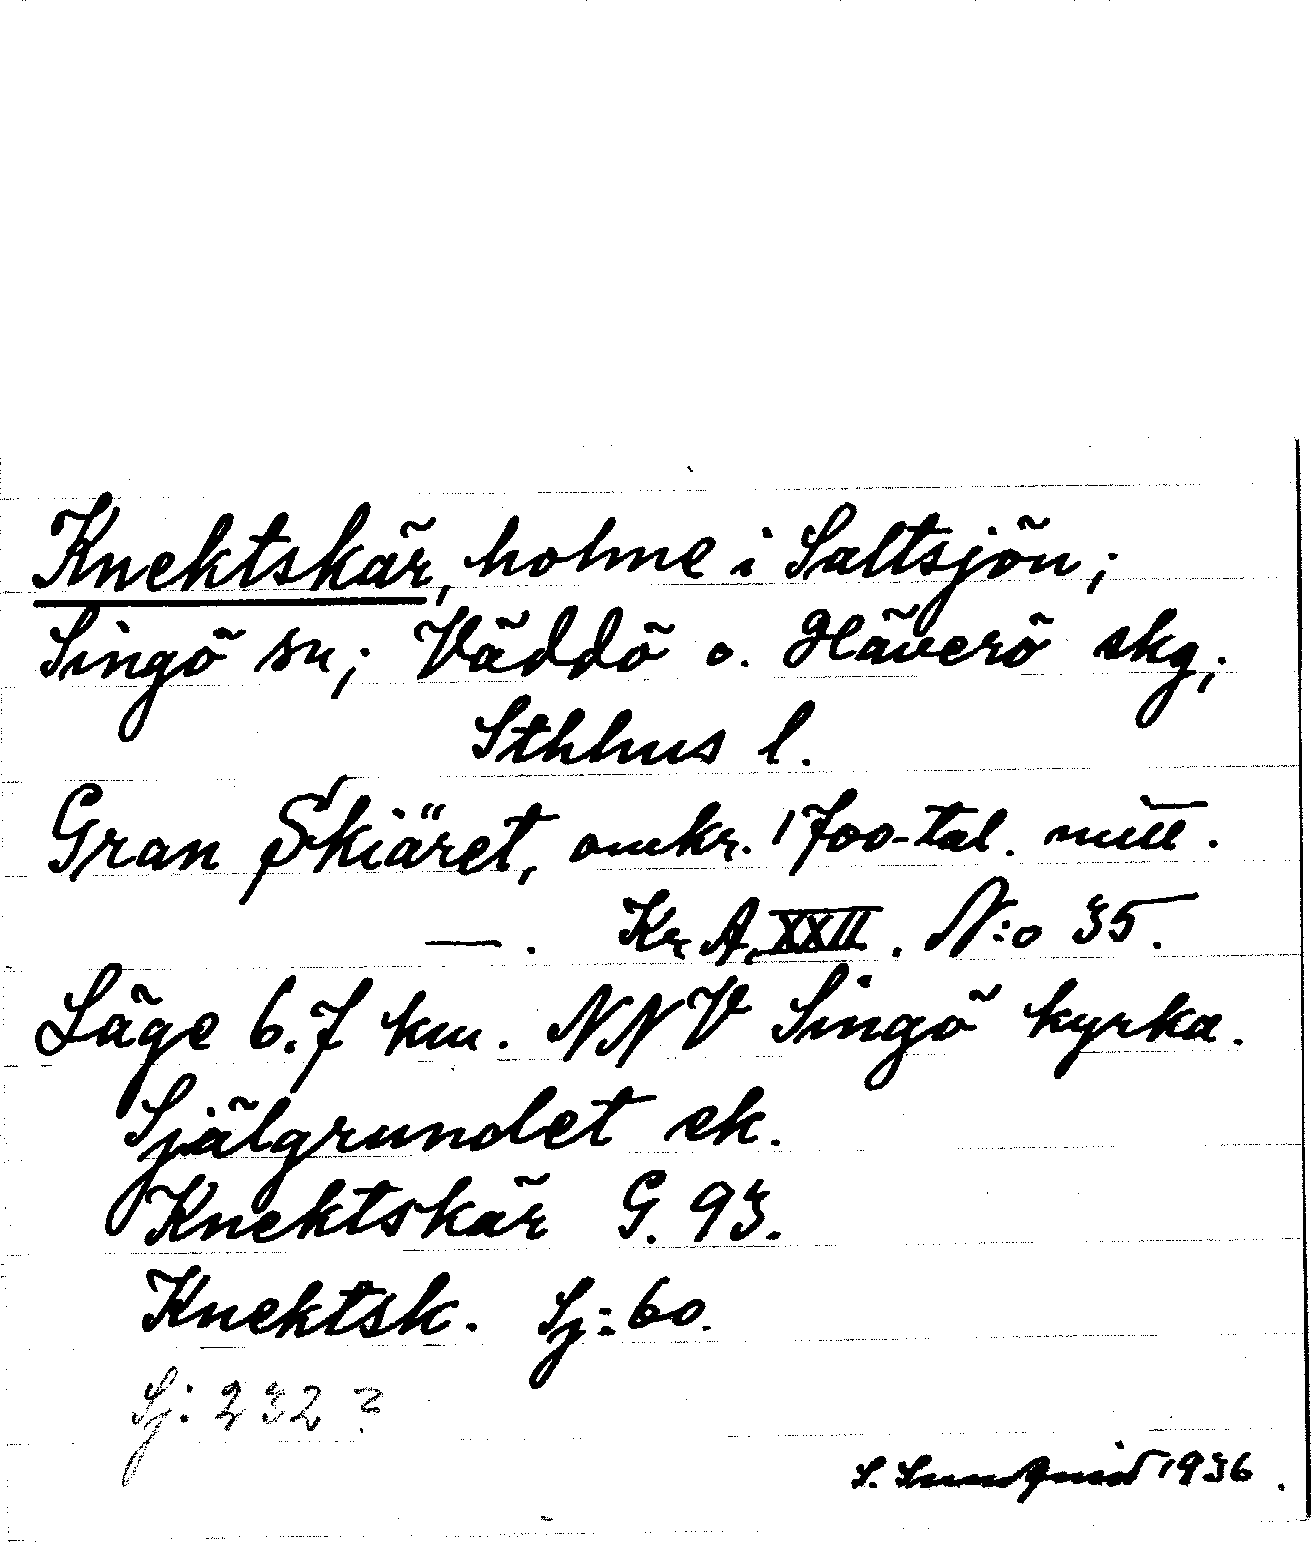 Knektskär, holme i Saltsjön;
Singö sn; Väddö o. Häverö skg;
Sthhus l.
Gran Skiäret, omkr. 1700-tal. mitt.
—. Kr A. XXII. N:o 35.
Läge 6.7 km. NNV Singö kyrka.
Själgrundet ek.
Knektskär G. 93.
Knektsk. Sj: 60.
Sj: 232?
S. Sundquist 1936.